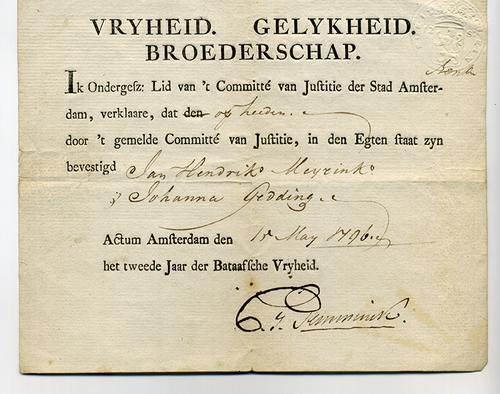 VRYHEID. GELYKHEID.
BROEDERSCHAP.
Ik Ondergesz: Lid van 't Committé van Juſtitie der Stad Amſter-
dam, verklaare, dat den op heeden.
door 't gemelde Committé van Juſtitie, in den Egten ſtaat zyn
bevestigd Jan Hendrik Meyrink
Johanna Gedding
Actum Amſterdam den 15 May 1796.
het tweede Jaar der Bataafſche Vryheid.